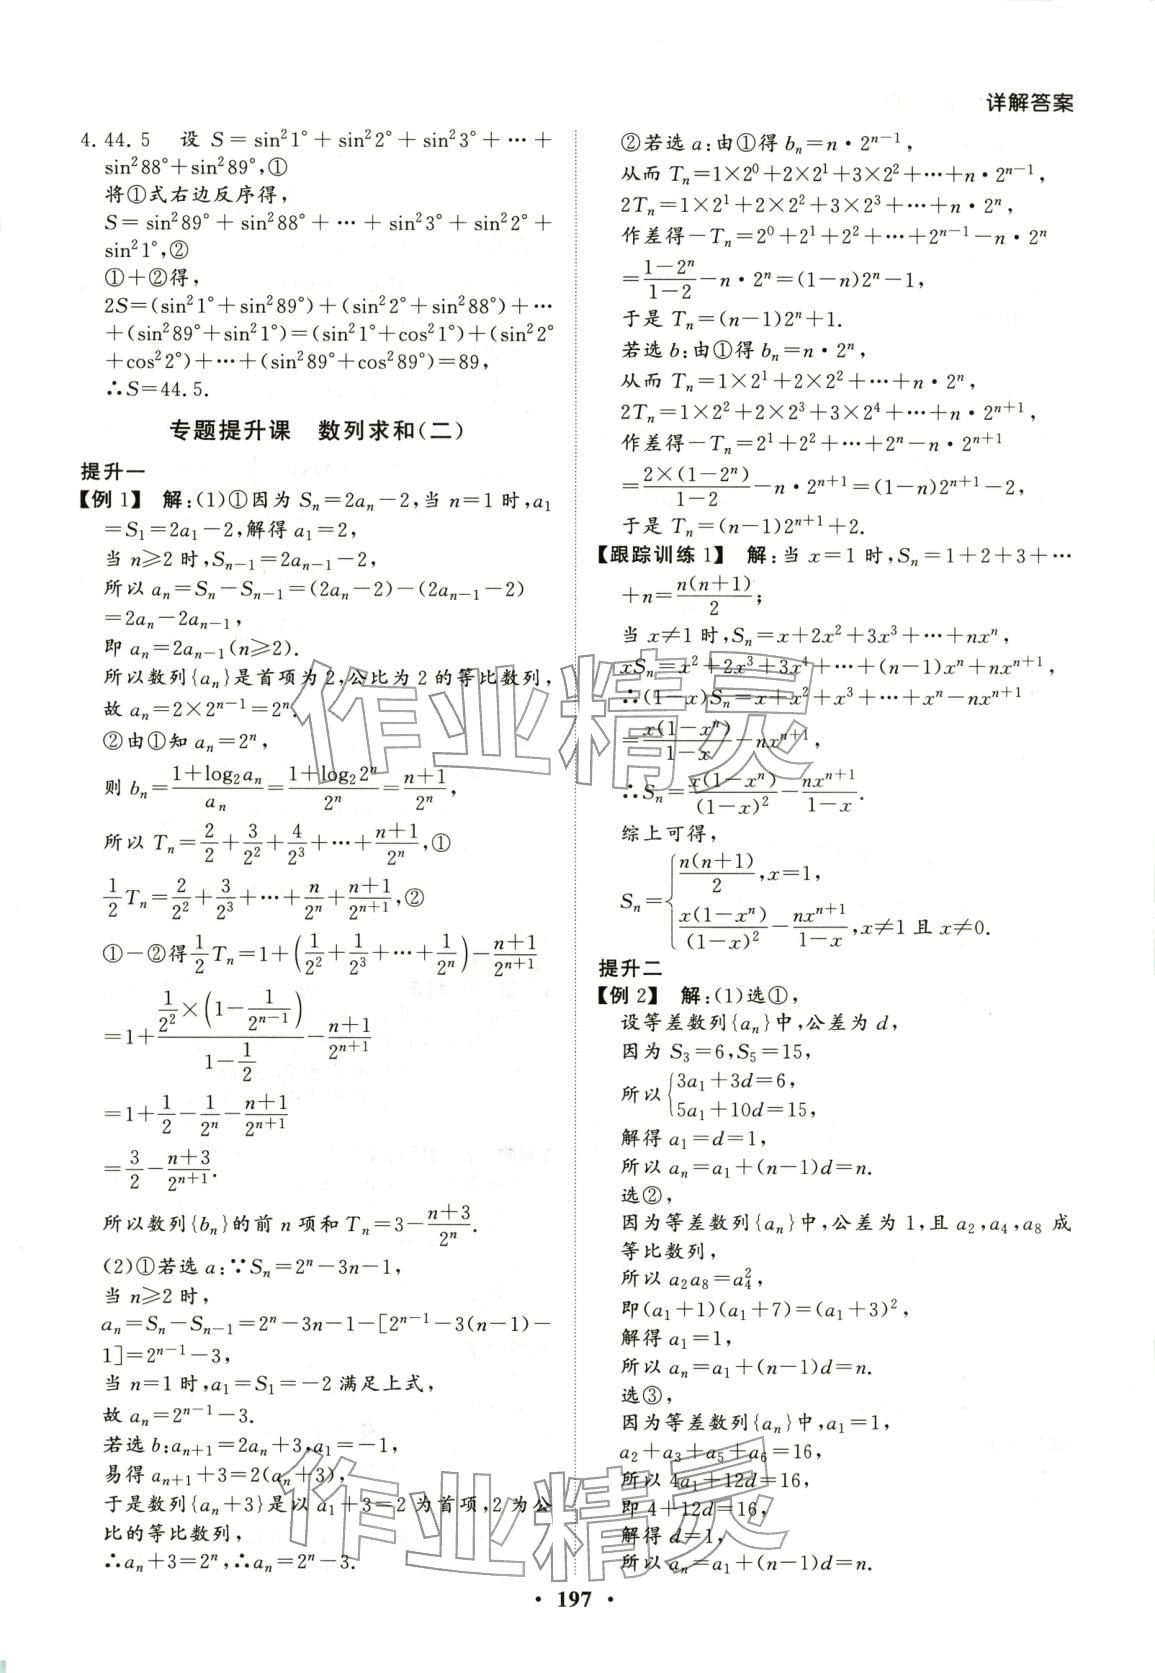 详解答案
4.44.5 设 S=sin²1°+sin²2°+sin²3°+⋯+
sin²88°+sin²89°,①
将①式右边反序得,
S=sin²89°+sin²88°+⋯+sin²3°+sin²2°+
sin²1°,②
①+②得,
2S=(sin²1°+sin²89°)+(sin²2°+sin²88°)+⋯
+(sin²89°+sin²1°)=(sin²1°+cos²1°)+(sin²2°
+cos²2°)+⋯+(sin²89°+cos²89°)=89,
∴S=44.5.
专题提升课 数列求和(二)
提升一
【例1】 解:(1)①因为 Sₙ=2aₙ-2,当 n=1 时,a₁
=S₁=2a₁-2,解得 a₁=2,
当 n≥2 时,Sₙ₋₁=2aₙ₋₁-2,
所以 aₙ=Sₙ-Sₙ₋₁=(2aₙ-2)-(2aₙ₋₁-2)
=2aₙ-2aₙ₋₁,
即 aₙ=2aₙ₋₁(n≥2).
所以数列{aₙ}是首项为 2,公比为 2 的等比数列,
故 aₙ=2×2ⁿ⁻¹=2ⁿ.
②由①知 aₙ=2ⁿ,
则 bₙ=(1+log₂aₙ)/aₙ=(1+log₂2ⁿ)/2ⁿ=(n+1)/2ⁿ,
所以 Tₙ=2/2+3/2²+4/2³+⋯+(n+1)/2ⁿ,①
1/2 Tₙ=2/2²+3/2³+⋯+n/2ⁿ+(n+1)/2ⁿ⁺¹,②
①-②得 1/2 Tₙ=1+(1/2²+1/2³+⋯+1/2ⁿ)-(n+1)/2ⁿ⁺¹
=1+[1/2²×(1-1/2ⁿ⁻¹)]/(1-1/2)-(n+1)/2ⁿ⁺¹
=1+1/2-1/2ⁿ-(n+1)/2ⁿ⁺¹
=3/2-(n+3)/2ⁿ⁺¹.
所以数列{bₙ}的前 n 项和 Tₙ=3-(n+3)/2ⁿ.
(2)①若选 a:∵Sₙ=2ⁿ-3n-1,
当 n≥2 时,
aₙ=Sₙ-Sₙ₋₁=2ⁿ-3n-1-[2ⁿ⁻¹-3(n-1)-
1]=2ⁿ⁻¹-3,
当 n=1 时,a₁=S₁=-2 满足上式,
故 aₙ=2ⁿ⁻¹-3.
若选 b:aₙ₊₁=2aₙ+3,a₁=-1,
易得 aₙ₊₁+3=2(aₙ+3),
于是数列{aₙ+3}是以 a₁+3=2 为首项,2 为公
比的等比数列,
∴aₙ+3=2ⁿ,∴aₙ=2ⁿ-3.
②若选 a:由①得 bₙ=n·2ⁿ⁻¹,
从而 Tₙ=1×2⁰+2×2¹+3×2²+⋯+n·2ⁿ⁻¹,
2Tₙ=1×2¹+2×2²+3×2³+⋯+n·2ⁿ,
作差得-Tₙ=2⁰+2¹+2²+⋯+2ⁿ⁻¹-n·2ⁿ
=(1-2ⁿ)/(1-2)-n·2ⁿ=(1-n)2ⁿ-1,
于是 Tₙ=(n-1)2ⁿ+1.
若选 b:由①得 bₙ=n·2ⁿ,
从而 Tₙ=1×2¹+2×2²+⋯+n·2ⁿ,
2Tₙ=1×2²+2×2³+3×2⁴+⋯+n·2ⁿ⁺¹,
作差得-Tₙ=2¹+2²+⋯+2ⁿ-n·2ⁿ⁺¹
=2×(1-2ⁿ)/(1-2)-n·2ⁿ⁺¹=(1-n)2ⁿ⁺¹-2,
于是 Tₙ=(n-1)2ⁿ⁺¹+2.
【跟踪训练1】 解:当 x=1 时,Sₙ=1+2+3+⋯
+n=n(n+1)/2;
当 x≠1 时,Sₙ=x+2x²+3x³+⋯+nxⁿ,
xSₙ=x²+2x³+3x⁴+⋯+(n-1)xⁿ+nxⁿ⁺¹,
∴(1-x)Sₙ=x+x²+x³+⋯+xⁿ-nxⁿ⁺¹
=x(1-xⁿ)/(1-x)-nxⁿ⁺¹,
∴Sₙ=x(1-xⁿ)/(1-x)²-nxⁿ⁺¹/(1-x).
综上可得,
Sₙ={n(n+1)/2,x=1,
x(1-xⁿ)/(1-x)²-nxⁿ⁺¹/(1-x),x≠1 且 x≠0.
提升二
【例2】 解:(1)选①,
设等差数列{aₙ}中,公差为 d,
因为 S₃=6,S₅=15,
所以{3a₁+3d=6,
5a₁+10d=15,
解得 a₁=d=1,
所以 aₙ=a₁+(n-1)d=n.
选②,
因为等差数列{aₙ}中,公差为 1,且 a₂,a₄,a₈ 成
等比数列,
所以 a₂a₈=a₄²,
即(a₁+1)(a₁+7)=(a₁+3)²,
解得 a₁=1,
所以 aₙ=a₁+(n-1)d=n.
选③,
因为等差数列{aₙ}中,a₁=1,
a₂+a₃+a₅+a₆=16,
所以 4a₁+12d=16,
即 4+12d=16,
解得 d=1,
所以 aₙ=a₁+(n-1)d=n.
作业精灵
作业精灵
· 197 ·